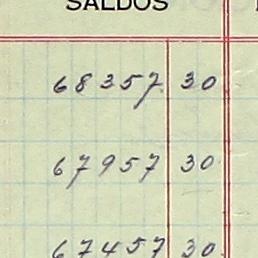 SALDOS
68357 30
67957 30
67457 30